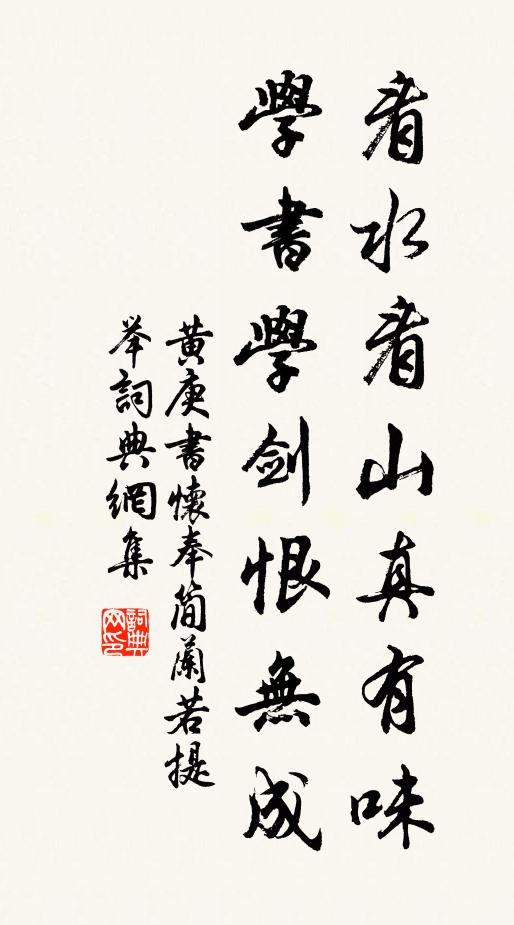 看水看山真有味
學書學劍恨無成
黃庚書懷奉簡蘭若提
举詞典網集
詞典
网印